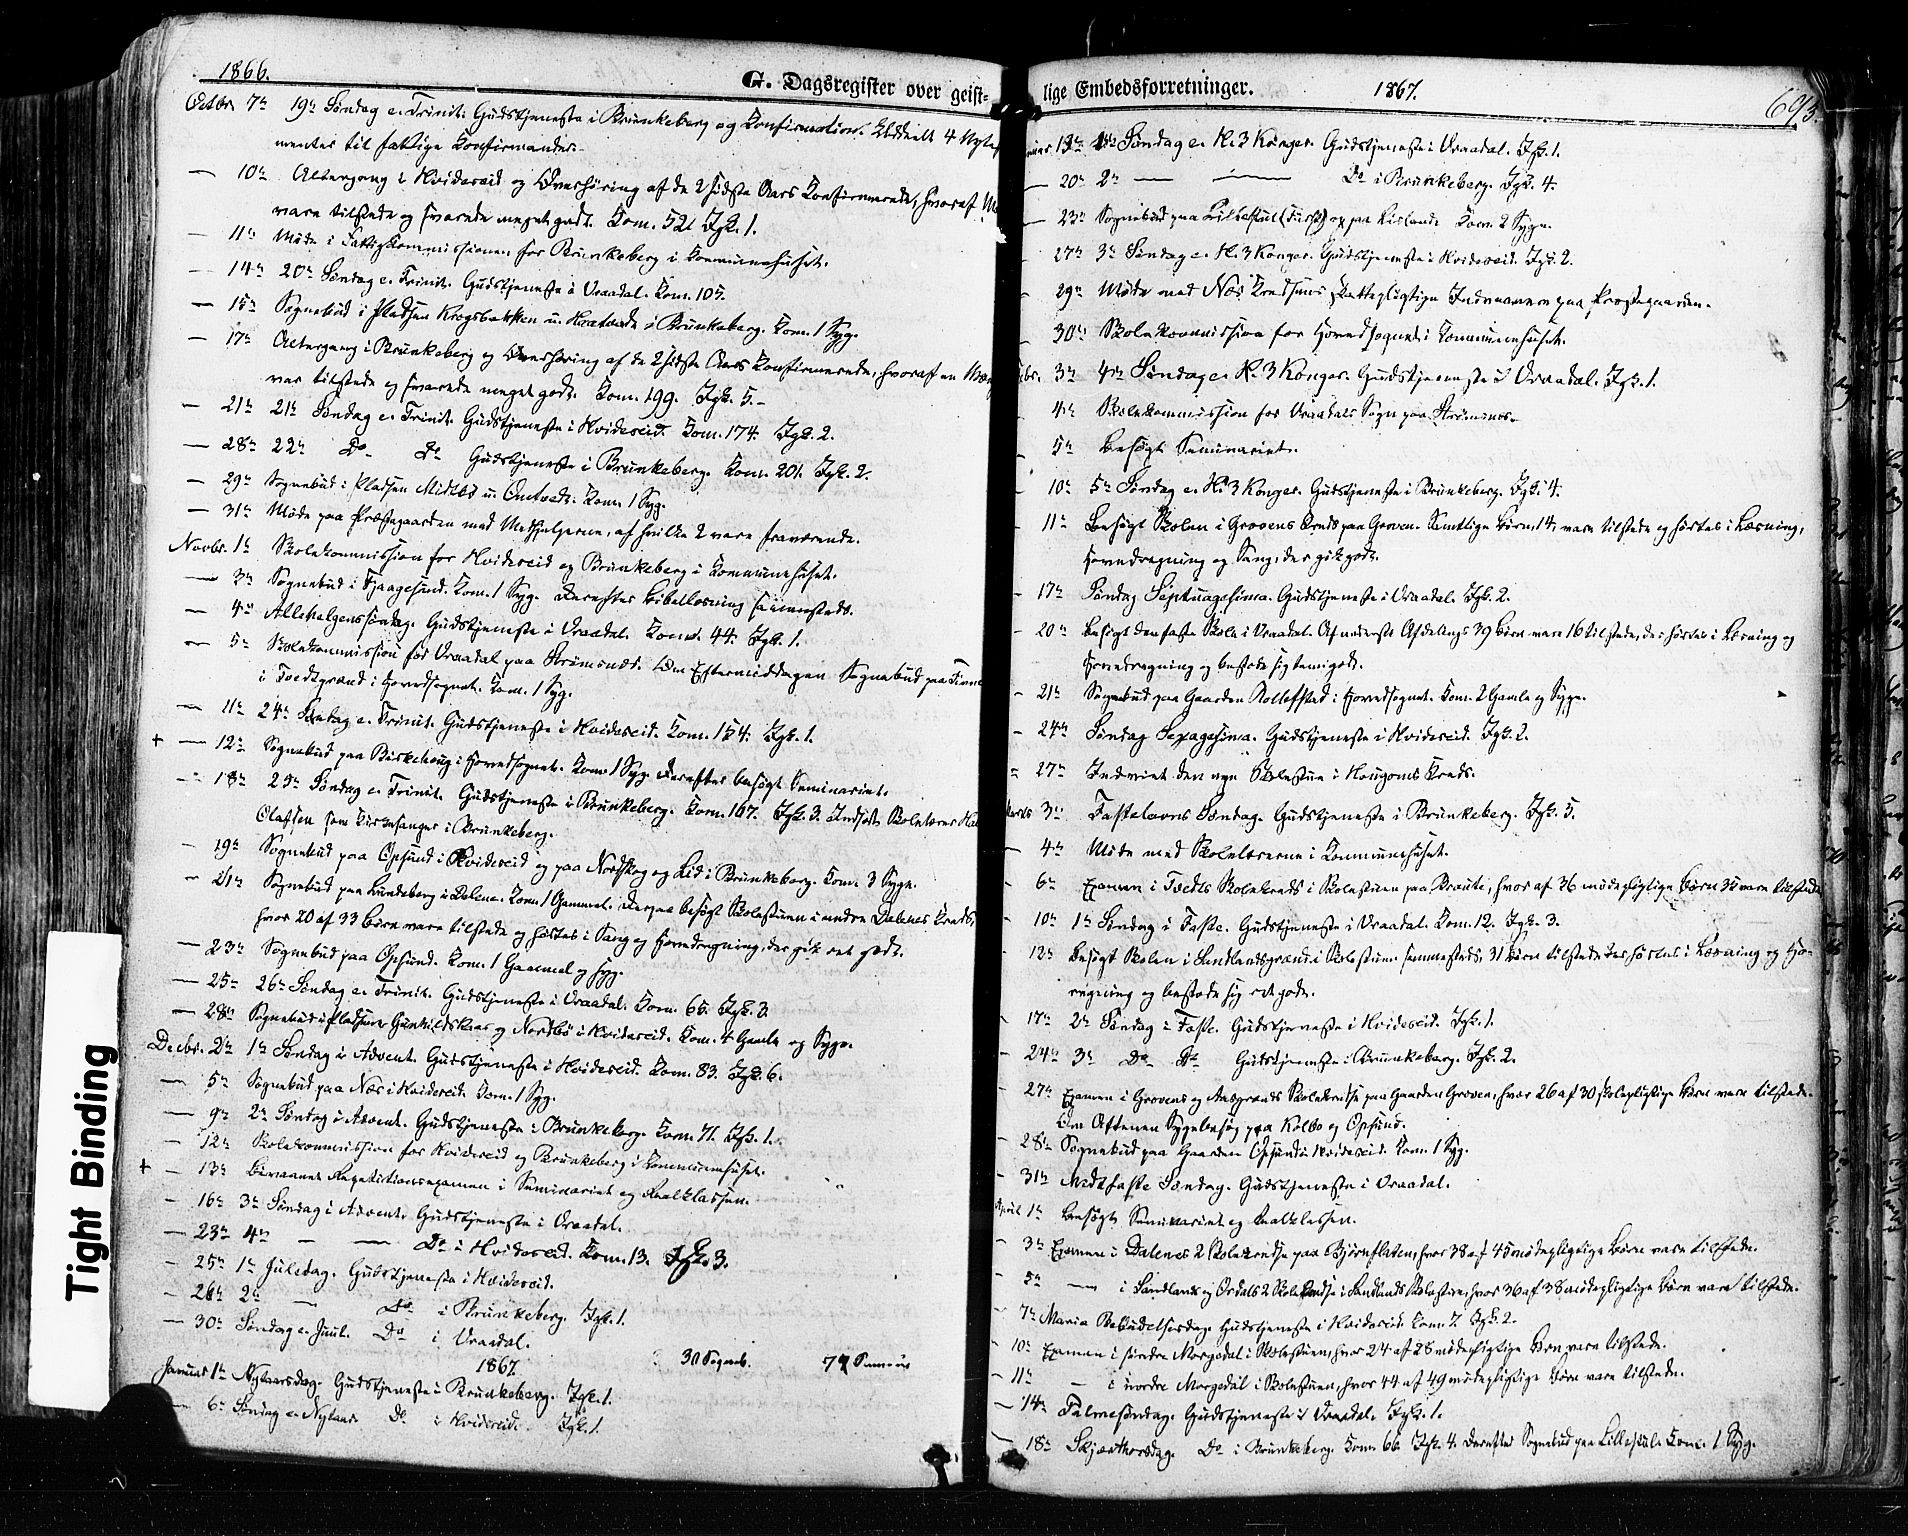 1866.
G. Dagsregister over geist-
Octbr 7de 19de Søndag e. Trinit. Gudstjeneste i Brunkeberg og Confirmation. Uddeelt 4 Nyte-
menter til fattige Confirmander.
— 10de Altergang i Hvideseid og Overhøring af de 2 sidste Aars Confirmerede, hvoraf
vare tilstede og svarede meget godt. Com. 52. Igk. 1.
— 11te Møde i Fattigkommissionen for Brunkeberg i Kommunehuset.
— 14de 20de Søndag e. Trinit. Gudstjeneste i Vraadal. Com. 105.
— 15de Sognebud i Pladsen Krogsbakken u. i Brunkeberg. Com. 1 Syg.
— 17de Altergang i Brunkeberg og Overhøring af de 2 sidste Aars Confirmerede, hvoraf en
var tilstede og svarede meget godt. Com. 199. Igk. 5.
— 21de 21de Søndag e. Trinit. Gudstjeneste i Hvideseid. Com. 174. Igk. 2.
— 28de 22de Do Do Gudstjeneste i Brunkeberg. Com. 201. Igk. 2.
— 29de Sognebud i Pladsen Midtbø u. Com. 1 Syg.
— 31te Møde paa Præstegaarden med Medhjelperne, af hvilke 2 vare fraværende.
Novbr. 1te Skolekommission for Hvideseid og Brunkeberg i Kommunehuset.
— 3de Sognebud i Fjaagesund. Com. 1 Syg. Derefter Bibellæsning sammesteds.
— 4de Allehelgenssøndag. Gudstjeneste i Vraadal. Com. 44. Igk. 1.
— 5te Skolekommission for Vraadal paa Strømsnæs. Om Eftermiddagen Sognebud paa
i Tvedtgrænd i Hovedsognet. Com. 1 Syg.
— 11te 24de Søndag e. Trinit. Gudstjeneste i Hvideseid. Com. 154. Igk. 1.
+ — 12te Sognebud paa Birkehaug i Hovedsognet. Com. 1 Syg. Derefter besøgt Seminariet.
— 18de 25de Søndag e. Trinit. Gudstjeneste i Brunkeberg. Com. 167. Igk. 3. Indsadt Skolelærer
Olafsen som Kirkesanger i Brunkeberg.
— 19de Sognebud paa Opsund i Hvideseid og paa Nordskog og Lid i Brunkeberg. Com. 3 Syge.
— 21de Sognebud paa Lundeberg i Dalene. Com. 1 Gammel. Derpaa besøgt Skolestuen i nedre Dalenes Kreds,
hvor 20 af 33 Børn vare tilstede og hørtes i Sang og Hovedregning, der gik ret godt.
— 23de Sognebud paa Opsund. Com. 1 Gammel og Syg.
— 25de 26de Søndag e. Trinit. Gudstjeneste i Vraadal. Com. 65. Igk. 3.
— 28de Sognebud i Pladsene Gunhildskaas og Nordbø i Hvideseid. Com. 4 Gamle og Syge.
Decbr. 2den 1ste Søndag i Advent. Gudstjeneste i Hvideseid. Com. 83. Igk. 6.
— 5te Sognebud paa Næs i Hvideseid. Com. 1 Syg.
— 9de 2den Søndag i Advent. Gudstjeneste i Brunkeberg. Com. 71. Igk. 1.
— 12te Skolekommission for Hvideseid og Brunkeberg i Kommunehuset.
+ — 13de Bivaanet Repetitionsexamen i Seminariet og Realklassen.
— 16de 3de Søndag i Advent. Gudstjeneste i Vraadal.
— 23de 4de — — Do i Hvideseid. Com. 13. Igk. 3.
— 25de 1ste Juledag. Gudstjeneste i Hvideseid.
— 26de 2den — Do i Brunkeberg. Igk. 1.
— 30te Søndag e. Juul. Do i Vraadal.
1867. 30 Sogneb.
Januar 1ste Nytaarsdag. Gudstjeneste i Brunkeberg. Igk. 1.
— 6te Søndag e. Nytaar Do i Hvideseid. Igk. 1.
lige Embedsforretninger.
1867.
693.
13de 1ste Søndag e. H. 3 Konger. Gudstjeneste i Vraadal. Igk. 1.
— 20de 2den — — Do i Brunkeberg. Igk. 4.
— 23de Sognebud paa Lillestul og paa Lisland. Com. 2 Syge.
27de 3de Søndag e. H. 3 Konger. Gudstjeneste i Hvideseid. Igk. 2.
29de Møde med Næs Kredsens skattepligtige Indvaanere paa Præstegaarden.
30te Skolekommission for Hovedsognet i Kommunehuset.
3de 4de Søndag e. H. 3 Konger. Gudstjeneste i Vraadal. Igk. 1.
4de Skolekommission for Vraadals Sogn paa Strømsnes.
5te Besøgt Seminariet.
10de 5te Søndag e. H. 3 Konger. Gudstjeneste i Brunkeberg. Igk. 4.
11te Besøgt Skolen i Grovens Kreds paa Groven. Samtlige Børn, 14, vare tilstede og hørtes i Læsning,
Hovedregning og Sang, der gik godt.
17de Søndag Septuagesima. Gudstjeneste i Vraadal. Igk. 2.
20de Besøgt den faste Skole i Vraadal. Af nederste Afdelings 39 Børn vare 16 tilstede, der hørtes i Læsning og
Hovedregning og bestode sig temmelig godt.
21de Sognebud paa Gaarden Rolleffstad i Hovedsognet. Com. 2 Gamle og Syge.
24de Søndag Sexagesima. Gudstjeneste i Hvideseid. Igk. 2.
27de Indviet den nye Skolestue i Haugoms Kreds.
Marts 3de Fastelavns Søndag. Gudstjeneste i Brunkeberg. Igk. 5.
4de Møde med Skolelærerne i Kommunehuset.
6te Examen i Tvedts Skolekreds i Skolestuen paa Braute, hvor af 36 mødepligtige Børn 35 vare tilstede.
10de 1ste Søndag i Faste. Gudstjeneste i Vraadal. Com. 12. Igk. 3.
12te Besøgt Skolen i Sundlandsgrænd i Skolestuen sammesteds. 31 Børn tilstede der hørtes i Læsning og Ho-
regning og bestode sig ret godt.
17de 2den Søndag i Faste. Gudstjeneste i Hvideseid. Igk. 1.
24de 3de Do Do Gudstjeneste i Brunkeberg. Igk. 2.
27de Examen i Grovens og Aasgrænds Skolekredse paa Gaarden Groven, hvor 26 af 30 skolepligtige Børn vare tilstede.
Om Aftenen Sygebesøg paa Kolbo og Opsund.
28de Sognebud paa Gaarden Opsund i Hvideseid. Com. 1 Syg.
31te Midtfaste Søndag. Gudstjeneste i Vraadal.
April 1ste Besøgt Seminariet og Realklassen.
3de Examen i Dalenes 2 Skolekredse paa Bjørnflaten, hvor 38 af 45 mødepligtige Børn vare tilstede.
5te — i Sundlands og Ordals 2 Skolekredse i Sundlands Skolestue, hvor 36 af 38 mødepligtige Børn vare tilstede.
7de Maria Bebudelsesdag. Gudstjeneste i Hvideseid. Com. 7. Igk. 2.
10de Examen i søndre Morgedal i Skolestuen, hvor 24 af 28 mødepligtige Børn vare tilstede.
11te — i nordre Morgedal i Skolestuen, hvor 44 af 49 mødepligtige Børn vare tilstede.
14de Palmesøndag. Gudstjeneste i Vraadal. Igk. 1.
18de Skjærthorsdag. Do i Brunkeberg. Com. 66. Igk. 4. Derefter Sognebud paa Lillestul. Com. 1 Syg.
Tight Binding